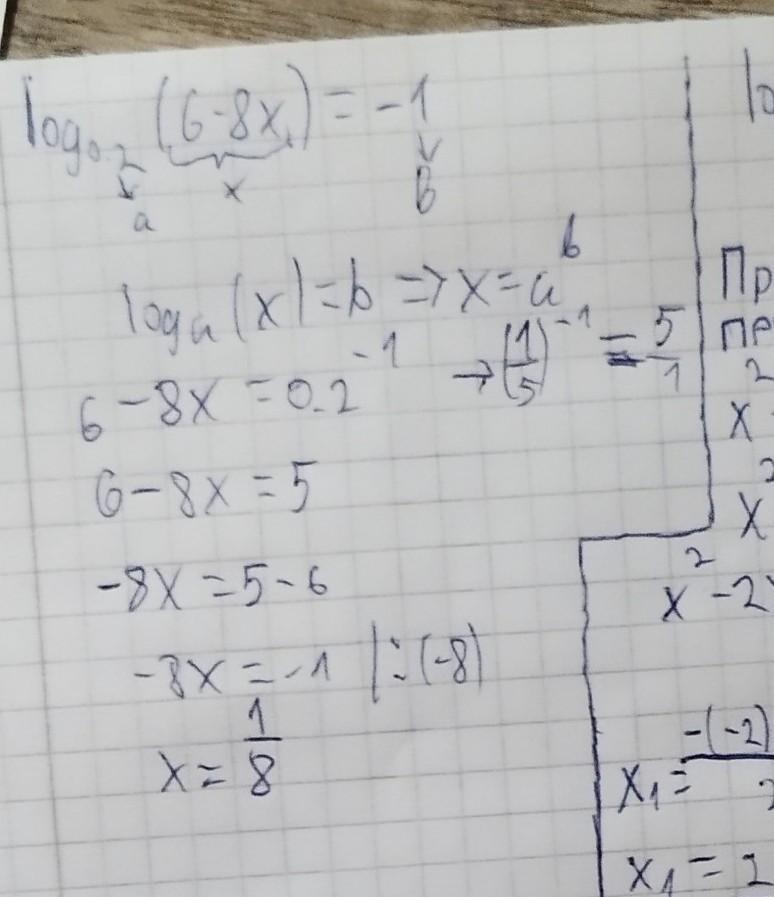 log₀.₂ (6-8x) = -1
a x B
logₐ(x)=b => x=aᵇ
6-8x=0.2⁻¹ → (1/5)⁻¹ = 5/1
6-8x=5
-8x=5-6
-8x=-1 |:(-8)
x=1/8
lo
Пр
пр
x²
x²
x²-2
x₁= -(-2)
x₁=